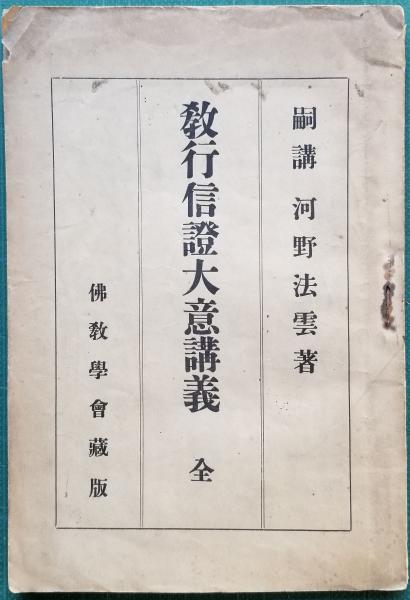 嗣講 河野法雲著
教行信證大意講義 全
佛教學會藏版